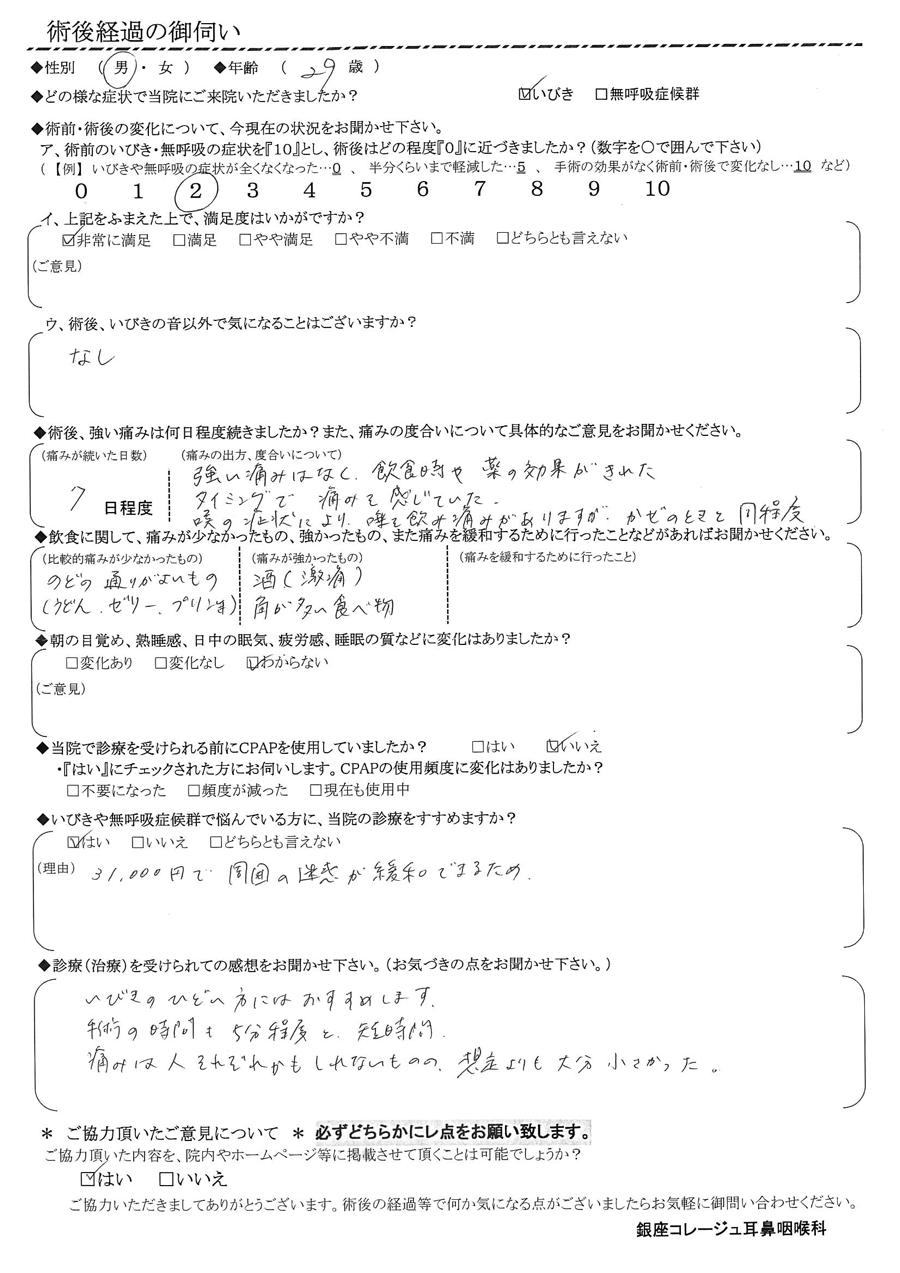 術後経過の御伺い
◆性別 （ 男 ・ 女 ） ◆年齢 （ 29 歳 ）
◆どの様な症状で当院にご来院いただきましたか？ ☑いびき □無呼吸症候群
◆術前・術後の変化について、今現在の状況をお聞かせ下さい。
ア、術前のいびき・無呼吸の症状を『10』とし、術後はどの程度『0』に近づきましたか？（数字を○で囲んで下さい）
（【例】いびきや無呼吸の症状が全くなくなった…0 、 半分くらいまで軽減した…5 、 手術の効果がなく術前・術後で変化なし…10 など）
0 1 2 3 4 5 6 7 8 9 10
イ、上記をふまえた上で、満足度はいかがですか？
☑非常に満足 □満足 □やや満足 □やや不満 □不満 □どちらとも言えない
（ご意見）
ウ、術後、いびきの音以外で気になることはございますか？
なし
◆術後、強い痛みは何日程度続きましたか？また、痛みの度合いについて具体的なご意見をお聞かせください。
（痛みが続いた日数） （痛みの出方、度合いについて）
強い痛みはなく、飲食時や薬の効果がきれた
7 日程度 タイミングで痛みを感じていた。
喉の症状により、唾を飲み痛みがありますが、かぜのときと同程度
◆飲食に関して、痛みが少なかったもの、強かったもの、また痛みを緩和するために行ったことなどがあればお聞かせください。
（比較的痛みが少なかったもの） （痛みが強かったもの） （痛みを緩和するために行ったこと）
のどの通りがよいもの 酒（激痛）
（うどん、ゼリー、プリン等） 角が多い食べ物
◆朝の目覚め、熟睡感、日中の眠気、疲労感、睡眠の質などに変化はありましたか？
□変化あり □変化なし ☑わからない
（ご意見）
◆当院で診療を受けられる前にCPAPを使用していましたか？ □はい ☑いいえ
・『はい』にチェックされた方にお伺いします。CPAPの使用頻度に変化はありましたか？
□不要になった □頻度が減った □現在も使用中
◆いびきや無呼吸症候群で悩んでいる方に、当院の診療をすすめますか？
☑はい □いいえ □どちらとも言えない
（理由） 31,000円で周囲の迷惑が緩和できるため。
◆診療（治療）を受けられての感想をお聞かせ下さい。（お気づきの点をお聞かせ下さい。）
いびきのひどい方にはおすすめします。
手術の時間も5分程度と、短時間。
痛みは人それぞれかもしれないものの、想定よりも大分小さかった。
＊ ご協力頂いたご意見について ＊ 必ずどちらかにレ点をお願い致します。
ご協力頂いた内容を、院内やホームページ等に掲載させて頂くことは可能でしょうか？
☑はい □いいえ
ご協力いただきましてありがとうございます。術後の経過等で何か気になる点がございましたらお気軽に御問い合わせください。
銀座コレージュ耳鼻咽喉科